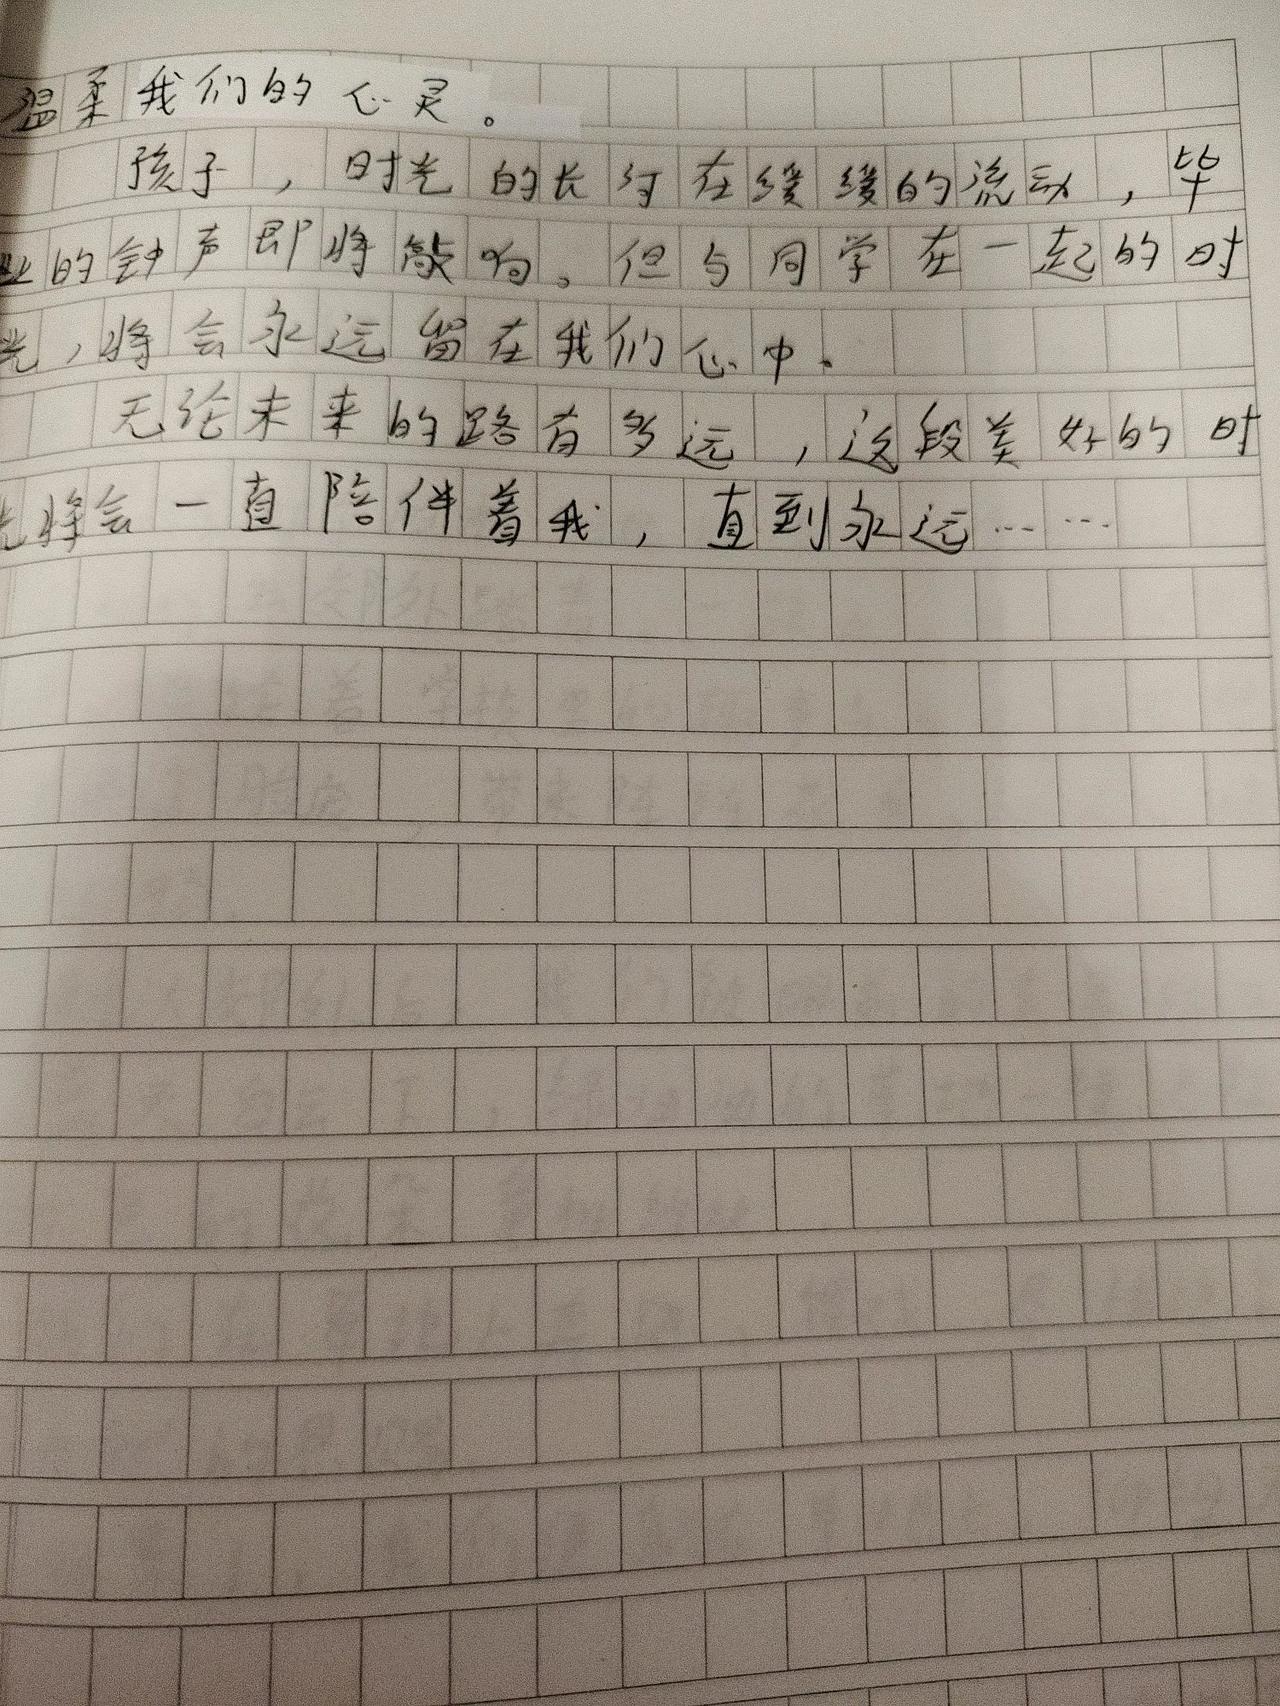 温柔我们的心灵。
孩子，时光的长河在缓缓的流动，毕
业的钟声即将敲响。但与同学在一起的时
光，将会永远留在我们心中。
无论未来的路有多远，这段美好的时
光将会一直陪伴着我，直到永远……